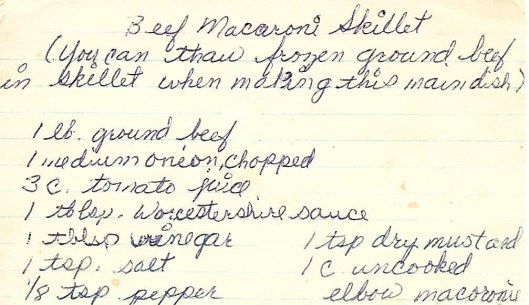 Beef Macaroni Skillet
(You can thaw frozen ground beef
in skillet when making this main dish)
1 lb. ground beef
1 medium onion, chopped
3 c. tomato juice
1 tblsp. Worcestershire sauce
1 tblsp vinegar
1 tsp. salt
1/8 tsp pepper
1 tsp dry mustard
1 c uncooked
elbow macoroni